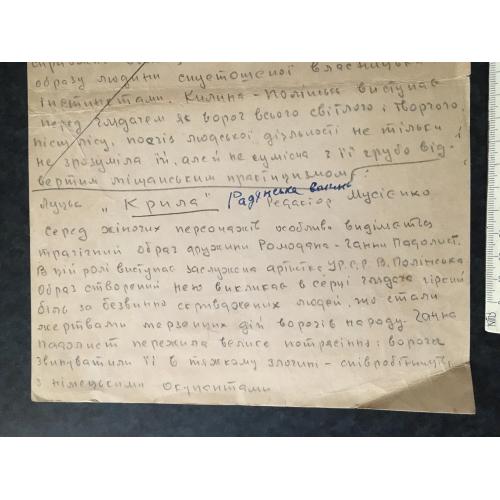 образу людини спустошеної власницьки
інстинктами. Килина - Полінська виступає
перед глядачем як ворог всього світлого і творчого.
пісні лісу, поезія людської діяльності не тільки
не зрозуміла їй, але й не сумісна з її грубо від-
вертим міщанським практицизмом.
Луцьк „Крила" Радянська Волинь Редактор Мусієнко
Серед жіночих персонажів особливо виділяється
трагічний образ дружини Ромодана - Ганни Падолист.
В цій ролі виступає заслужена артістка УРСР В. Полінська
Образ створений нею викликає в серці глядача гіркий
біль за безвинно скривджених людей, що стали
жертвами мерзенних дій ворогів народу. Ганна
Падолист пережила велике потрясіння: вороги
звинуватили її в тяжкому злочині - співробітництві
з німецькими окупантами